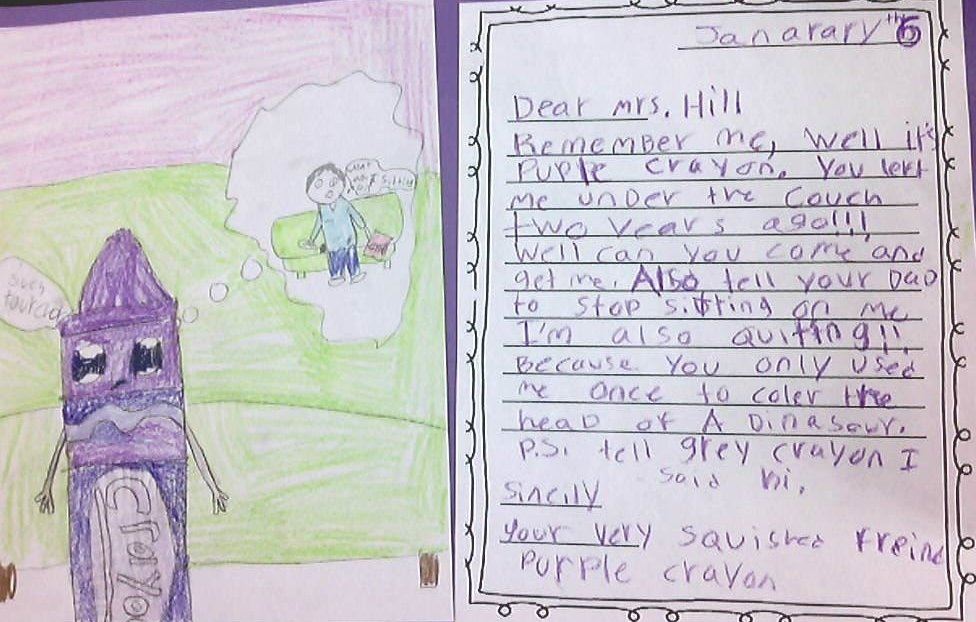 Crayo
Janarary 6th
Dear mrs. Hill
Remember me, well it's
Puple crayon. You left
me under the couch
two years ago!!!
Well can you come and
get me. Also tell your Dad
to stop sitting on me
I'm also quitting!!
Because you only used
me once to coler the
head of A Dinasour.
P.S. tell grey crayon I
said hi.
Sincily
your very squished freind
Purple crayon